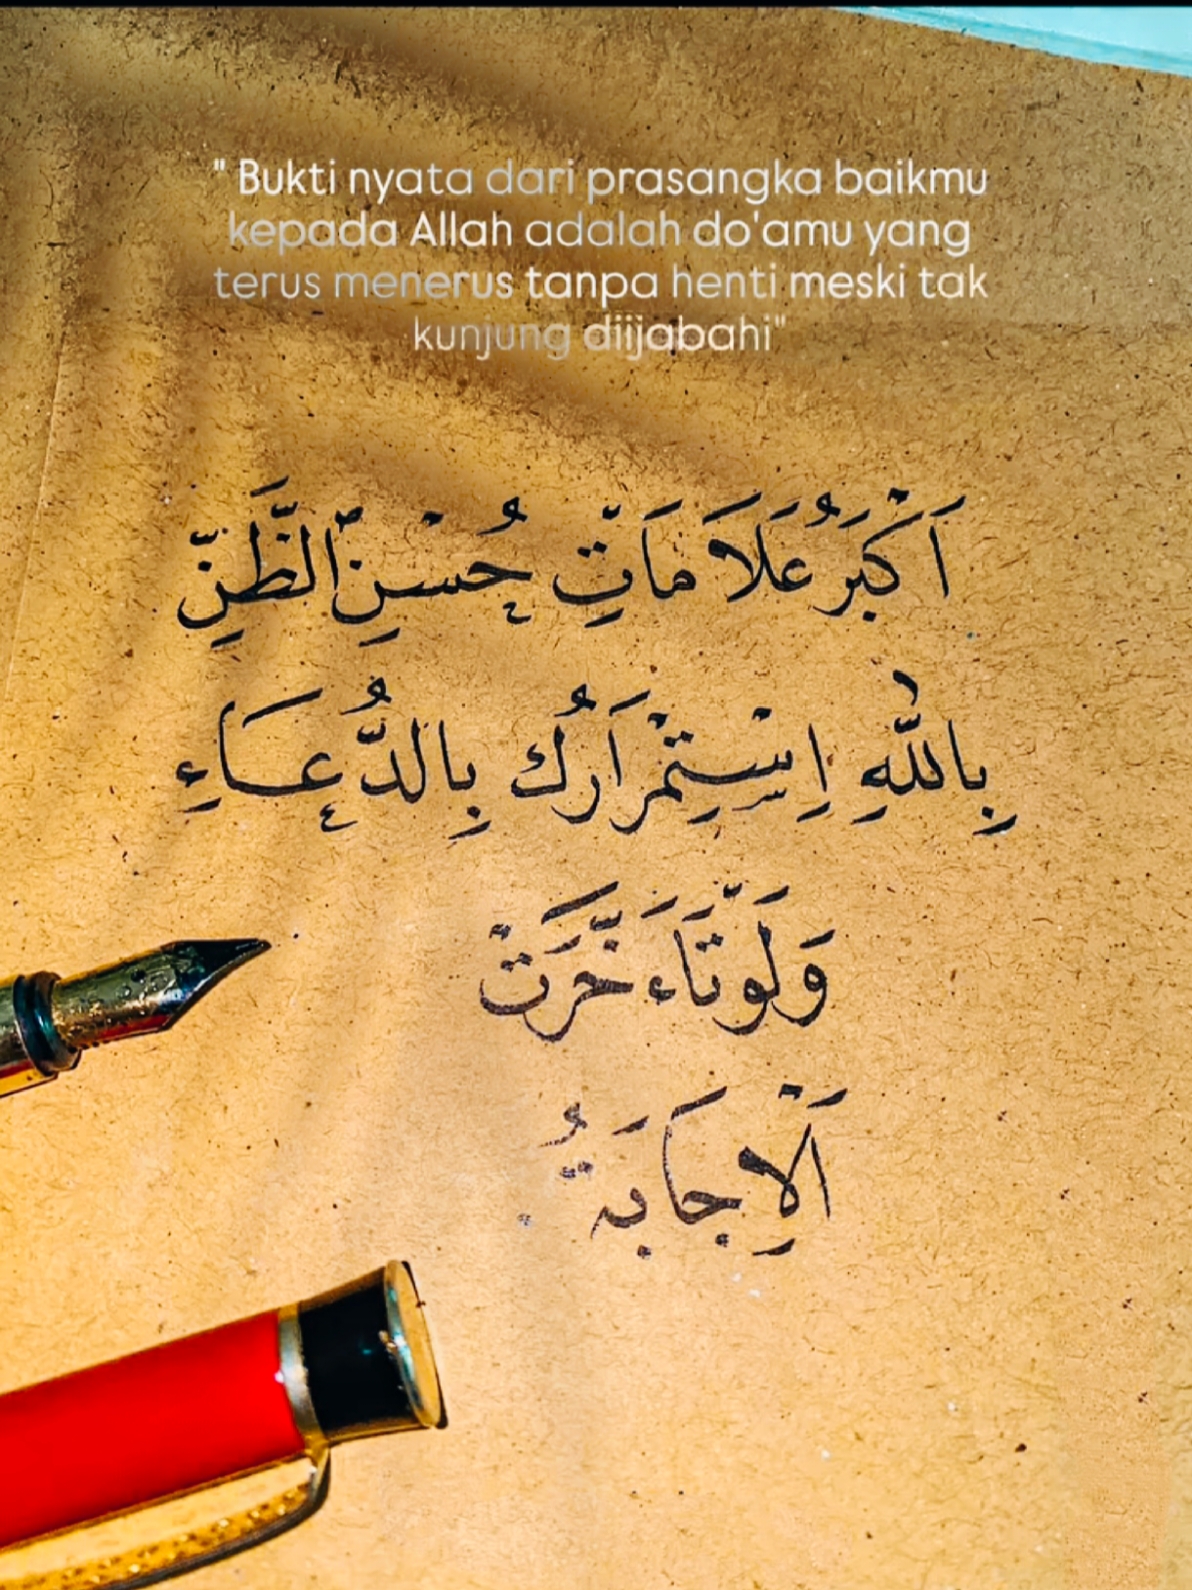 " Bukti nyata dari prasangka baikmu
kepada Allah adalah do'amu yang
terus menerus tanpa henti meski tak
kunjung diijabahi"
اَكْبَرُ عَلَامَاتِ حُسْنِ الظَّنِّ
بِاللّٰهِ اِسْتِمْرَارُكَ بِالدُّعَاءِ
وَلَوْ تَاءَخَّرَتْ
اَلْاِجَابَةُ .